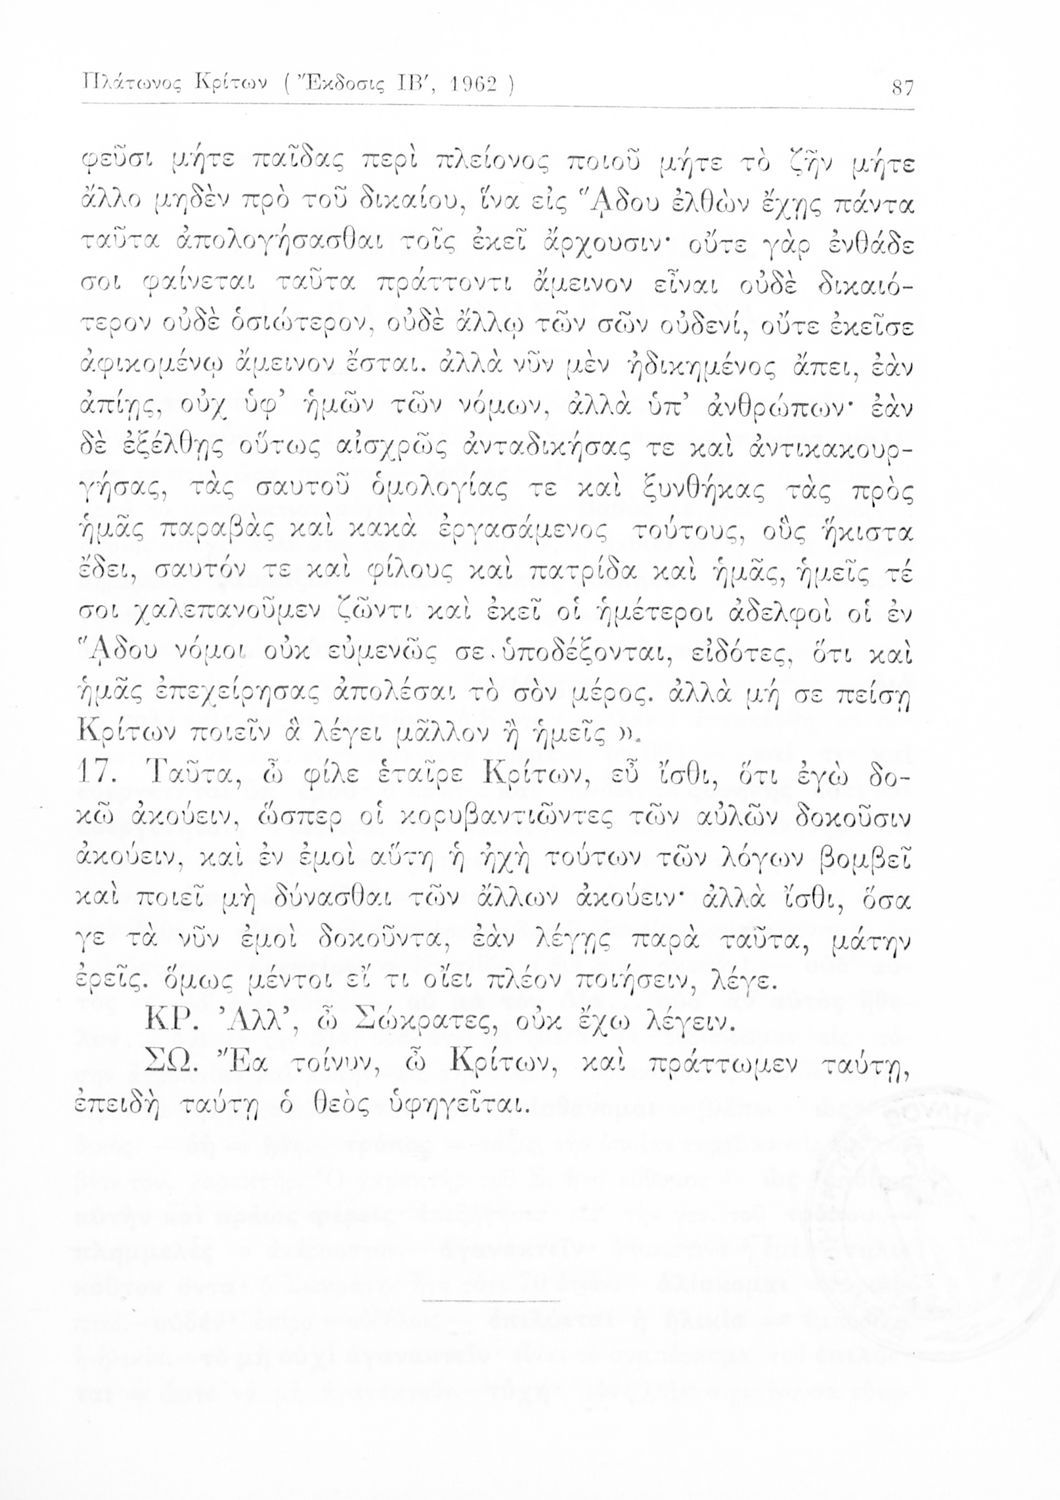 Πλάτωνος Κρίτων ( Ἔκδοσις ΙΒ′, 1962 ) 87
φεῦσι μήτε παῖδας περὶ πλείονος ποιοῦ μήτε τὸ ζῆν μήτε
ἄλλο μηδὲν πρὸ τοῦ δικαίου, ἵνα εἰς Ἅδου ἐλθὼν ἔχῃς πάντα
ταῦτα ἀπολογήσασθαι τοῖς ἐκεῖ ἄρχουσιν· οὔτε γὰρ ἐνθάδε
σοι φαίνεται ταῦτα πράττοντι ἄμεινον εἶναι οὐδὲ δικαιό-
τερον οὐδὲ ὁσιώτερον, οὐδὲ ἄλλῳ τῶν σῶν οὐδενί, οὔτε ἐκεῖσε
ἀφικομένῳ ἄμεινον ἔσται. ἀλλὰ νῦν μὲν ἠδικημένος ἄπει, ἐὰν
ἀπίῃς, οὐχ ὑφ’ ἡμῶν τῶν νόμων, ἀλλὰ ὑπ’ ἀνθρώπων· ἐὰν
δὲ ἐξέλθῃς οὕτως αἰσχρῶς ἀνταδικήσας τε καὶ ἀντικακουρ-
γήσας, τὰς σαυτοῦ ὁμολογίας τε καὶ ξυνθήκας τὰς πρὸς
ἡμᾶς παραβὰς καὶ κακὰ ἐργασάμενος τούτους, οὓς ἥκιστα
ἔδει, σαυτόν τε καὶ φίλους καὶ πατρίδα καὶ ἡμᾶς, ἡμεῖς τέ
σοι χαλεπανοῦμεν ζῶντι καὶ ἐκεῖ οἱ ἡμέτεροι ἀδελφοὶ οἱ ἐν
Ἅδου νόμοι οὐκ εὐμενῶς σε ὑποδέξονται, εἰδότες, ὅτι καὶ
ἡμᾶς ἐπεχείρησας ἀπολέσαι τὸ σὸν μέρος. ἀλλὰ μή σε πείσῃ
Κρίτων ποιεῖν ἃ λέγει μᾶλλον ἢ ἡμεῖς ».
17. Ταῦτα, ὦ φίλε ἑταῖρε Κρίτων, εὖ ἴσθι, ὅτι ἐγὼ δο-
κῶ ἀκούειν, ὥσπερ οἱ κορυβαντιῶντες τῶν αὐλῶν δοκοῦσιν
ἀκούειν, καὶ ἐν ἐμοὶ αὕτη ἡ ἠχὴ τούτων τῶν λόγων βομβεῖ
καὶ ποιεῖ μὴ δύνασθαι τῶν ἄλλων ἀκούειν· ἀλλὰ ἴσθι, ὅσα
γε τὰ νῦν ἐμοὶ δοκοῦντα, ἐὰν λέγῃς παρὰ ταῦτα, μάτην
ἐρεῖς. ὅμως μέντοι εἴ τι οἴει πλέον ποιήσειν, λέγε.
ΚΡ. Ἀλλ’, ὦ Σώκρατες, οὐκ ἔχω λέγειν.
ΣΩ. Ἔα τοίνυν, ὦ Κρίτων, καὶ πράττωμεν ταύτῃ,
ἐπειδὴ ταύτῃ ὁ θεὸς ὑφηγεῖται.